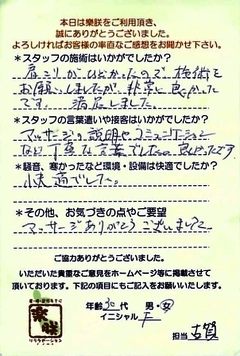 本日は楽咲をご利用頂き、
誠にありがとうございました。
よろしければお客様の率直なご感想をお聞かせ下さい。
*スタッフの施術はいかがでしたか?
肩こりがひどかったので施術を
お願いしましたが、非常に良かった
です。満足しました。
*スタッフの言葉遣いや接客はいかがでしたか?
マッサージの説明やコミュニケーション
など丁寧な言葉でしたの良かったです
*騒音、寒かったなど環境・設備は快適でしたか?
快適でした。
*その他、お気づきの点やご要望
マッサージありがとうございました
ご協力ありがとうございました。
いただいた貴重なご意見をホームページ等に掲載させて
頂いております。下記の項目にもご記入をお願いいたします。
年齢 30代 男・女
イニシャル F
楽咲
リラクゼーション
担当 古賀